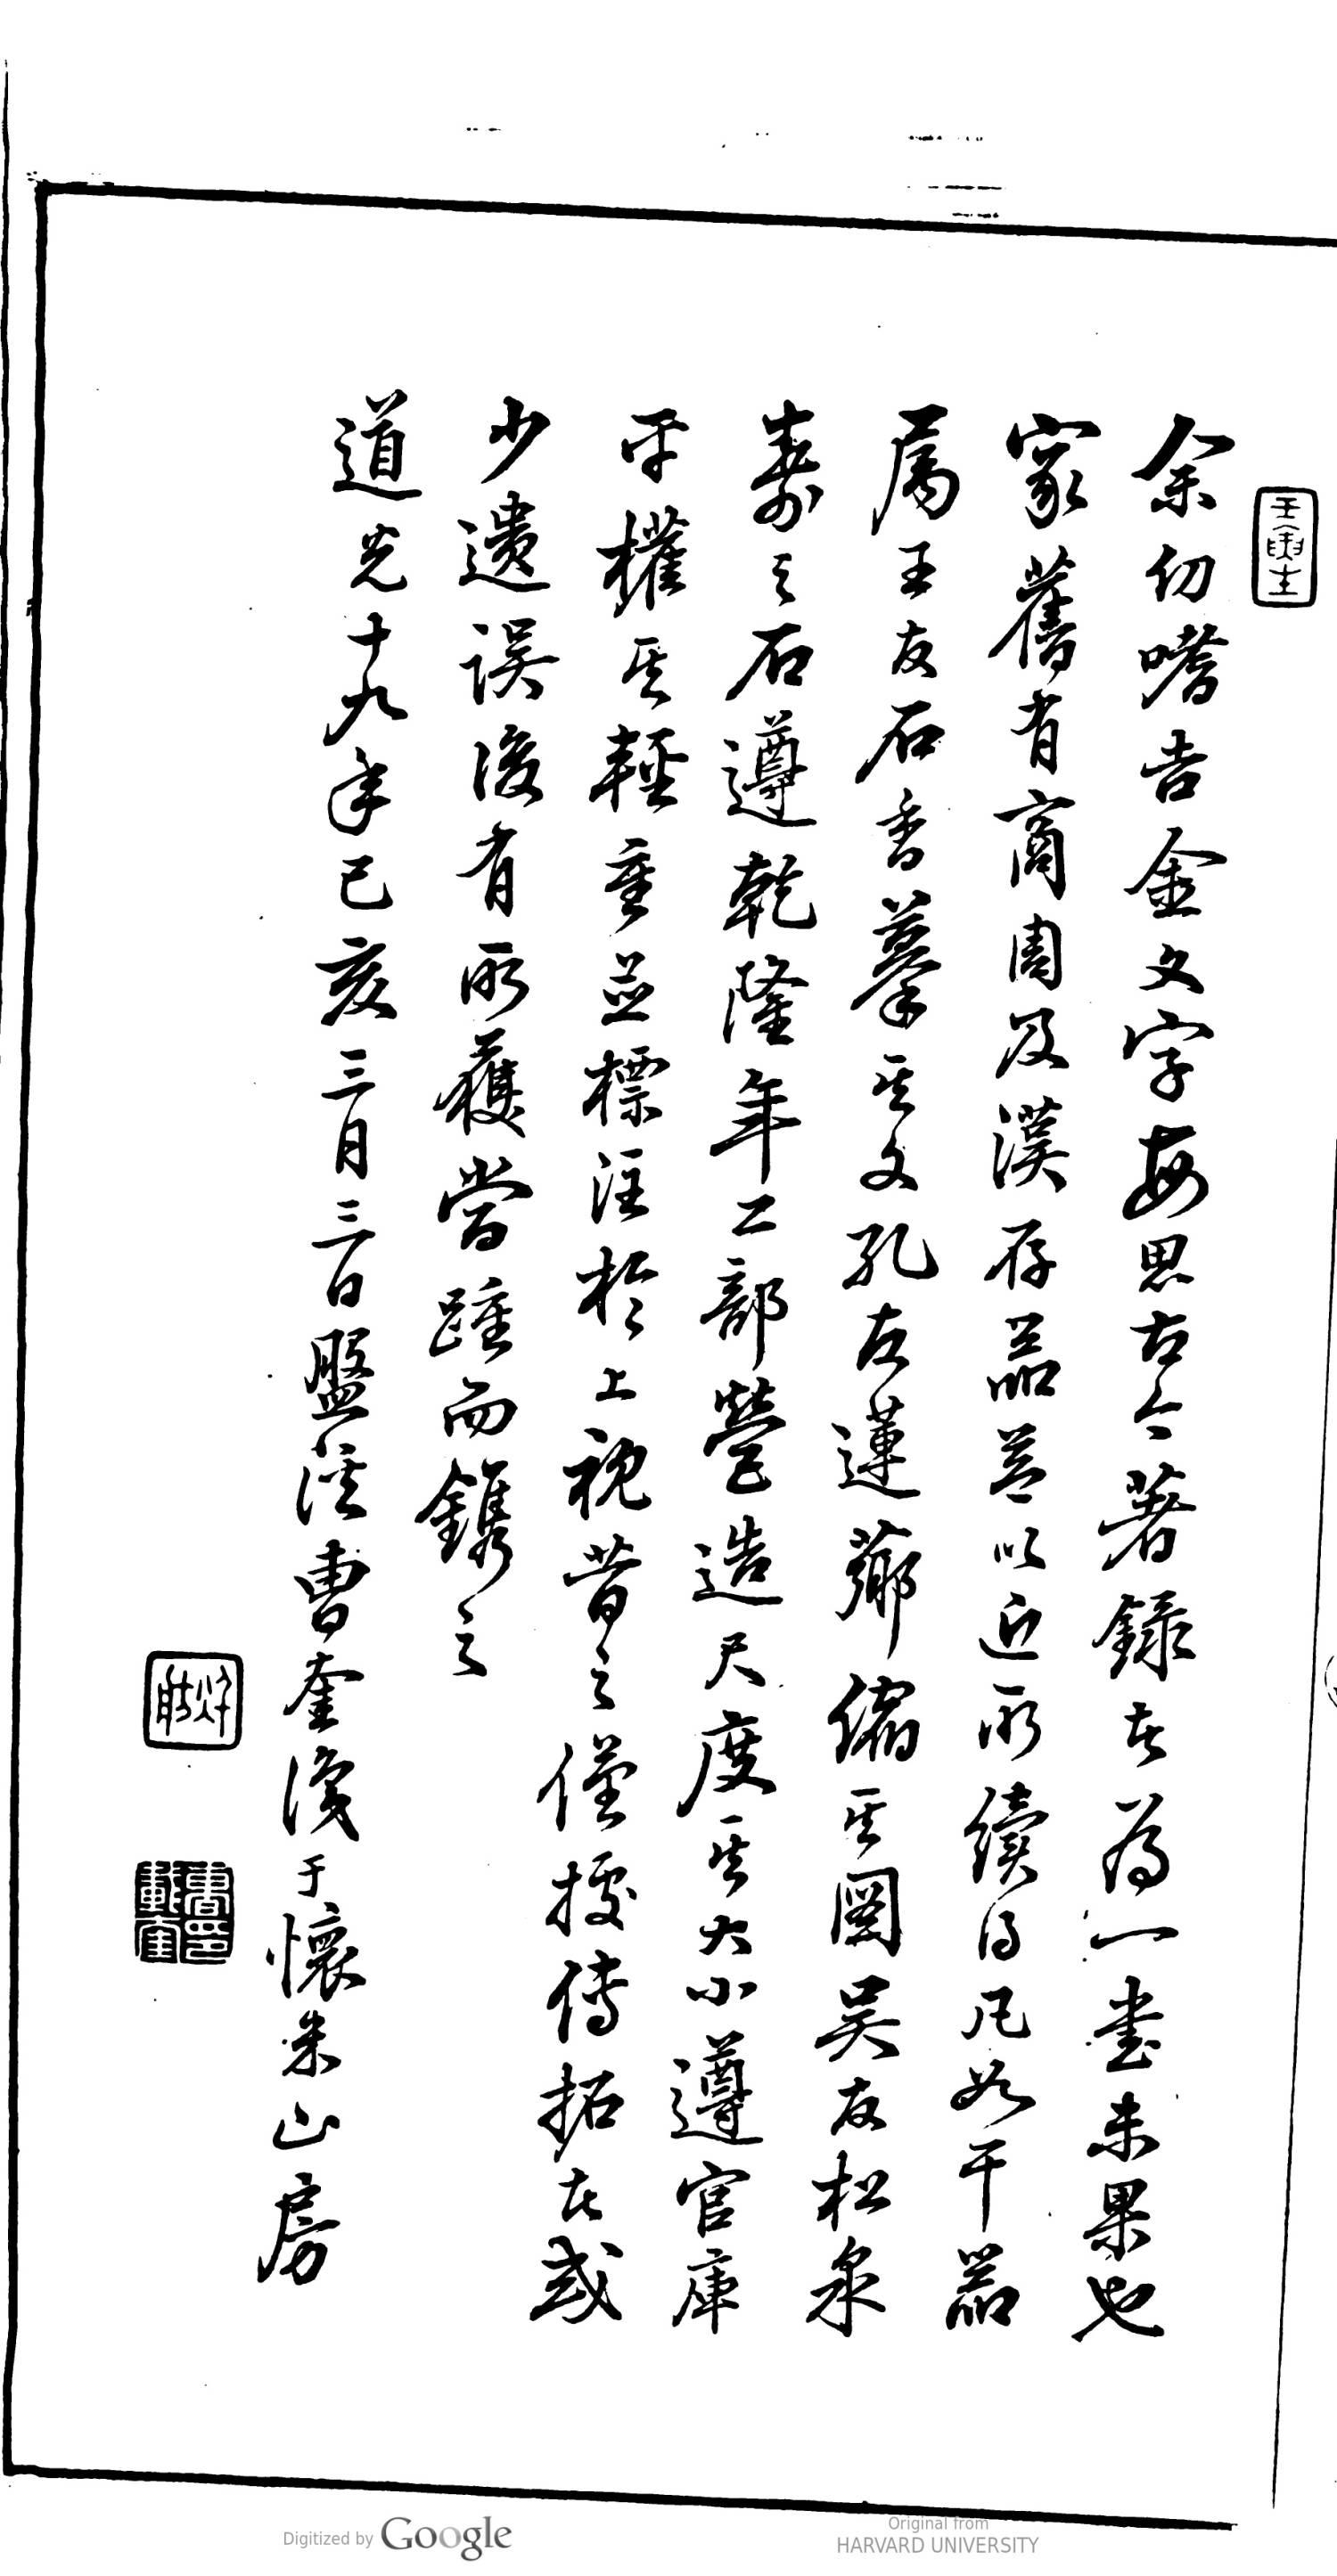 余幼嗜吉金文字每思古今著錄者爲一書未果也
家舊有商周及漢存器益以近所續得凡如干器
属王友石香摹其文孔友蓮薌縮其圖吴友松泉
壽之石遵乾隆年工部營造尺度其大小遵官庫
平權其輕重並標注於上視昔之僅據傳拓者或
少遺误後有所獲當踵而鐫之
道光十九年己亥三月三日盤溪曹奎識于懷米山房
Digitized by Google
Original from
HARVARD UNIVERSITY